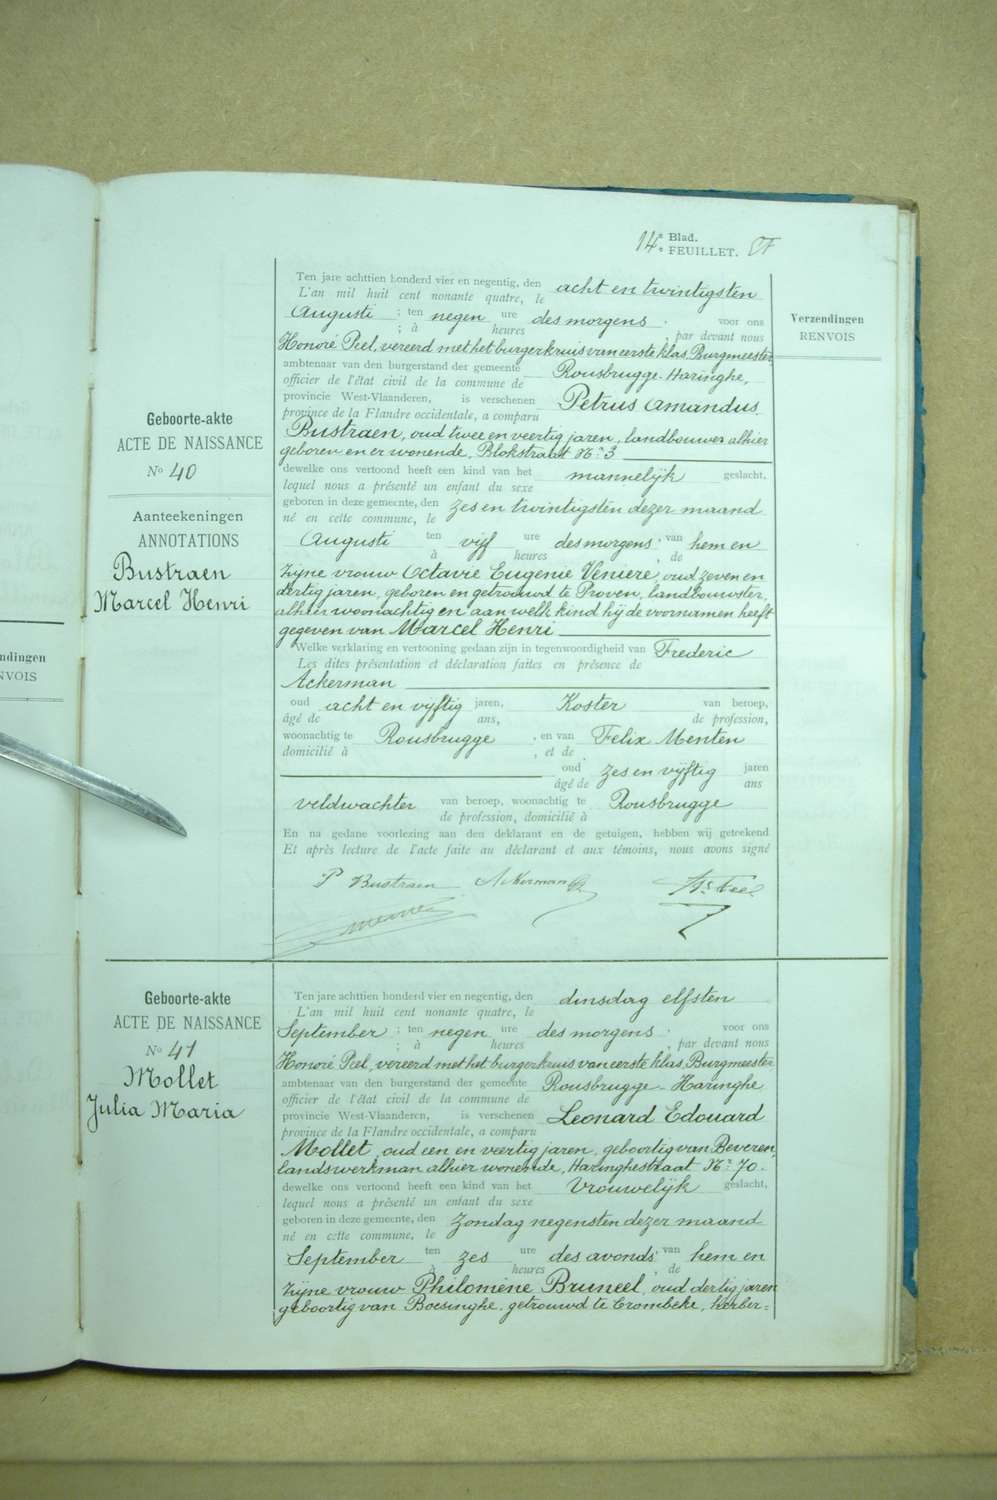 14e Blad.
FEUILLET.
Verzendingen
RENVOIS
Geboorte-akte
ACTE DE NAISSANCE
No 40
Aanteekeningen
ANNOTATIONS
Bustraen
Marcel Henri
Ten jare achttien honderd vier en negentig, den acht en twintigsten
L'an mil huit cent nonante quatre, le
Augusti ; ten negen ure des morgens . voor ons
; à heures , par devant nous
Honoré Peel, vereerd met het burgerkruis van eerste klas, Burgmeester,
ambtenaar van den burgerstand der gemeente Rousbrugge-Haringhe,
officier de l'état civil de la commune de
provincie West-Vlaanderen, is verschenen Petrus Amandus
province de la Flandre occidentale, a comparu
Bustraen, oud twee en veertig jaren, landbouwer alhier
geboren en er wonende, Blokstraat No 3
dewelke ons vertoond heeft een kind van het mannelijk geslacht,
lequel nous a présenté un enfant du sexe
geboren in deze gemeente, den zes en twintigsten dezer maand
né en cette commune, le
Augusti ten vijf ure des morgens , van hem en
à heures , de
zijne vrouw Octavie Eugenie Veniere, oud zeven en
dertig jaren, geboren en getrouwd te Proven, landbouwster,
alhier woonachtig en aan welk kind hij de voornamen heeft
gegeven van Marcel Henri
Welke verklaring en vertooning gedaan zijn in tegenwoordigheid van Frederic
Les dites présentation et déclaration faites en présence de
Ackerman
oud acht en vijftig jaren, Koster van beroep,
âgé de ans, de profession,
woonachtig te Rousbrugge , en van Felix Menten
domicilié à , et de
oud zes en vijftig jaren
âgé de ans
veldwachter van beroep, woonachtig te Rousbrugge
de profession, domicilié à
En na gedane voorlezing aan den deklarant en de getuigen, hebben wij geteekend
Et après lecture de l'acte faite au déclarant et aux témoins, nous avons signé
P Bustraen Ackerman Hé Peel
Menten
Geboorte-akte
ACTE DE NAISSANCE
No 41
Mollet
Julia Maria
Ten jare achttien honderd vier en negentig, den dinsdag elfsten
L'an mil huit cent nonante quatre, le
September ; ten negen ure des morgens . voor ons
; à heures , par devant nous
Honoré Peel, vereerd met het burgerkruis van eerste klas, Burgmeester
ambtenaar van den burgerstand der gemeente Rousbrugge-Haringhe
officier de l'état civil de la commune de
provincie West-Vlaanderen, is verschenen Leonard Edouard
province de la Flandre occidentale, a comparu
Mollet, oud een en veertig jaren, geboortig van Beveren,
landswerkman alhier wonende, Haringhestraat No 70.
dewelke ons vertoond heeft een kind van het Vrouwelijk geslacht,
lequel nous a présenté un enfant du sexe
geboren in deze gemeente, den Zondag negensten dezer maand
né en cette commune, le
September ten zes ure des avonds van hem en
à heures , de
zijne vrouw Philomène Bruneel, oud dertig jaren
geboortig van Boesinghe, getrouwd te Crombeke, herber=
ndingen
NVOIS